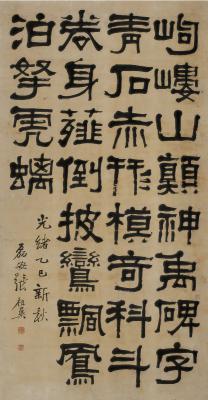 岣嶁山顛神禹碑字
青石赤形模奇科斗
拳身薤倒披鸞飄鳳
泊拏虎螭
光緒乙巳新秋
磊盦張祖翼